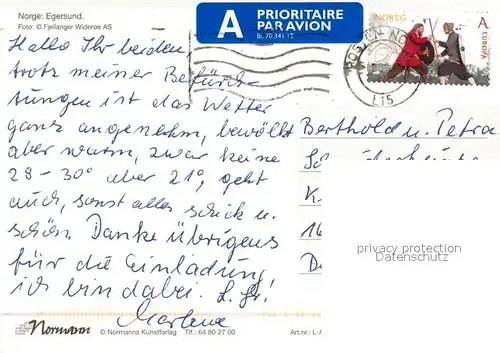 Norge: Egersund.
Foto: © Fjellanger Widerøe AS
A PRIORITAIRE
PAR AVION
BL. 70.341.12
NOREG
A
EUROPA
POSTEN NO
L15
Hallo Ihr beiden,
trotz meiner Befürch-
tungen ist das Wetter
ganz angenehm, bewölkt
aber warm, zwar keine
28 - 30° aber 21°, geht
auch, sonst alles schick u.
schön. Danke übrigens
für die Einladung
ich bin dabei. L. Gr!
Marlene
Berthold u. Petra
K.
16
D
privacy protection
Datenschutz
Normann
© Normanns Kunstforlag Tlf.: 64 80 27 00
Art.nr.: L-